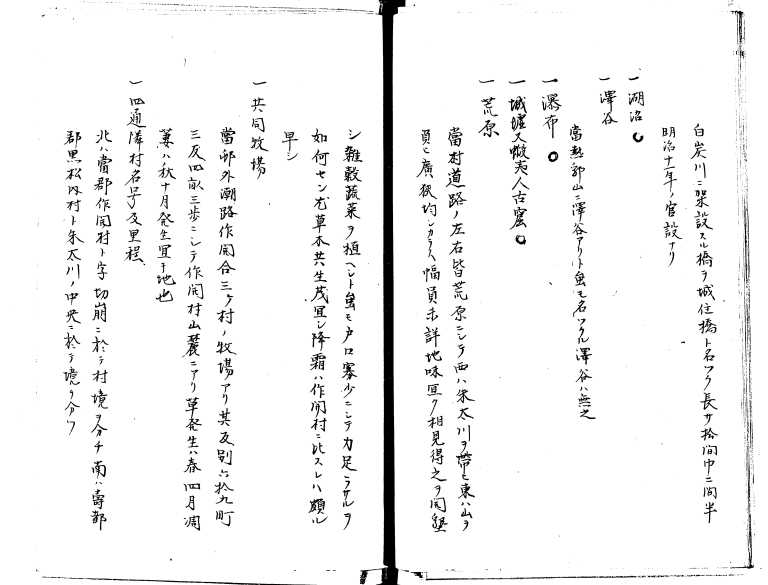 白炭川ニ架設スル橋ヲ城住橋ト名ツク長サ拾間巾二間半
明治十一年ノ官設ナリ
一湖沼〇
一澤谷
當熱郛山ニ澤谷アリト虽モ名ツクル澤谷ハ無之
一瀑布〇
一城墟又蝦夷人古窟〇
一荒原
當村道路ノ左右皆荒原ニシテ西ハ朱太川ヲ帶ヒ東ハ山ヲ
負ヒ廣狹均シカラス幅員未詳地味宜ク相見得之ヲ開墾
シ雜穀蔬菜ヲ植ヘント虽モ戸口寡少ニシテ力足ラサルヲ
如何セン尤草木共生茂宜シ降霜ハ作開村ニ比スレハ頗ル
早シ
一共同牧場
當郛外潮路作開合三ケ村ノ牧場アリ其反別六拾九町
三反四畝三歩ニシテ作開村山麓ニアリ草発生ハ春四月凋
萎ハ秋十月発生宜キ地也
一四通隣村名号及里程
北ハ當郡作開村ト字切崩ニ於テ村境ヲ分チ南ハ壽都
郡黒松内村ト朱太川ノ中央ニ於テ境ヲ分ツ